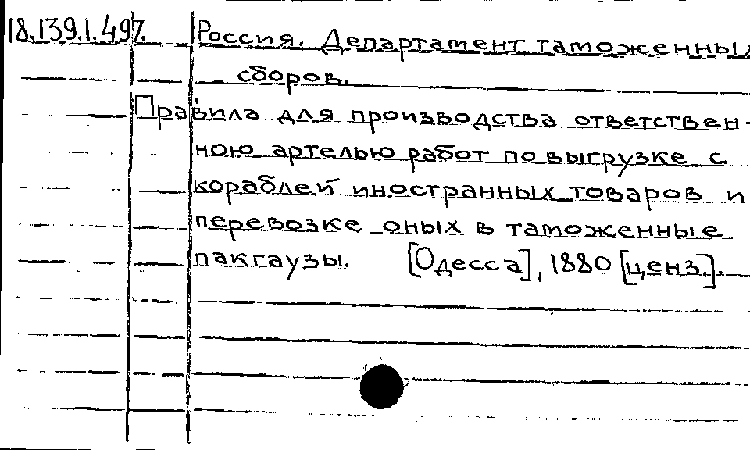 18.139.1.497. Россия. Департамент таможенных
сборов.
Правила для производства ответствен-
ною артелью работ по выгрузке с
кораблей иностранных товаров и
перевозке оных в таможенные
пакгаузы. [Одесса], 1880 [ценз.].